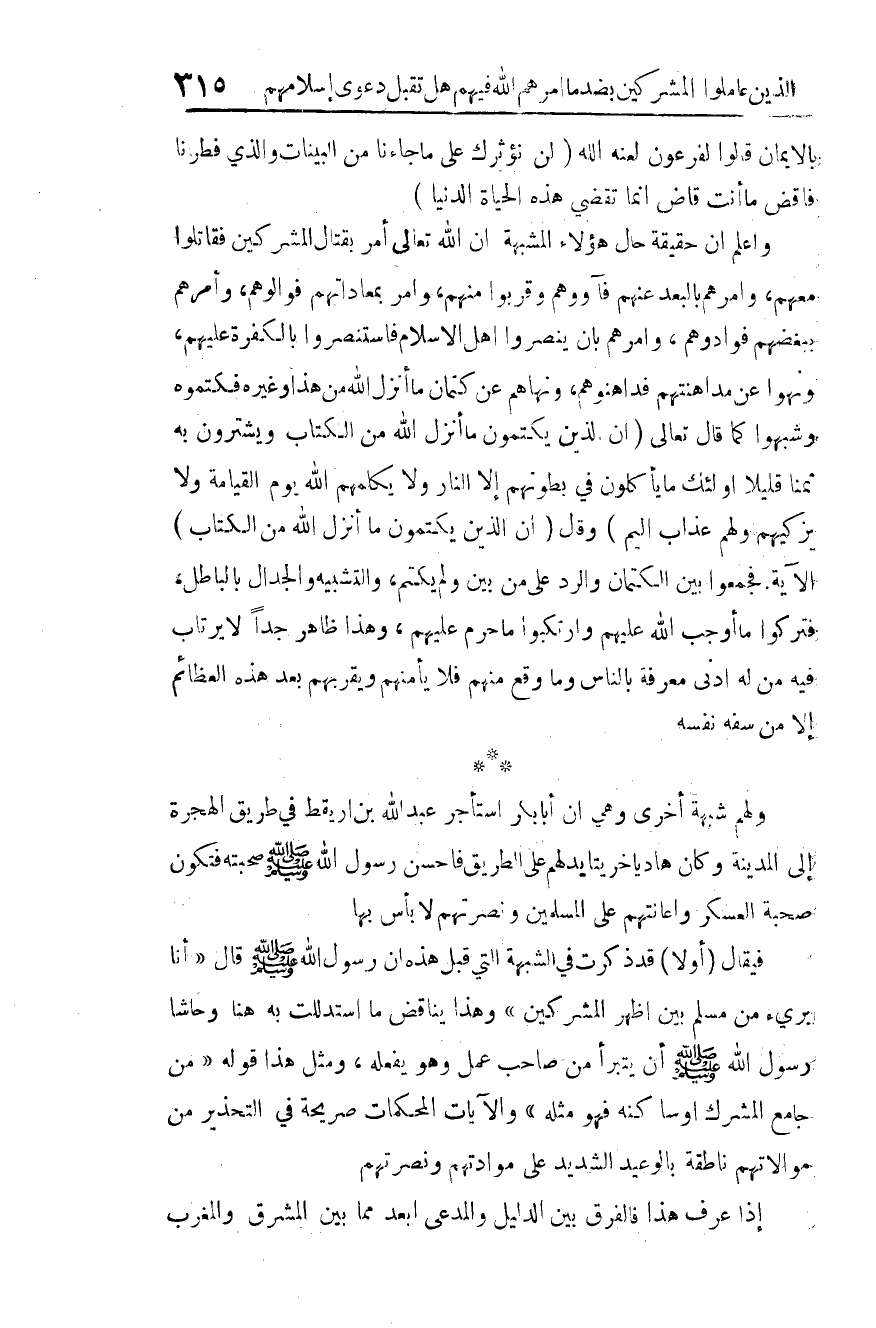 الذين عاملوا المشركين بضد ما امرهم الله فيهم هل تقبل دعوى إسلامهم ٣١٥
بالايمان قالوا لفرعون لعنه الله ( لن نؤثرك على ماجاءنا من البينات والذي فطرنا
فاقض ماأنت قاض انما تقضي هذه الحياة الدنيا )
واعلم ان حقيقة حال هؤلاء المشبهة ان الله تعالى أمر بقتال المشركين فقاتلوا
معهم، وامرهم بالبعد عنهم فآووهم وقربوا منهم، وامر بمعاداتهم فوالوهم، وأمرهم
ببغضهم فوادوهم ، وامرهم بان ينصروا اهل الاسلام فاستنصروا بالكفرة عليهم،
ونهوا عن مداهنتهم فداهنوهم، ونهاهم عن كتمان ماأنزل الله من هذا وغيره فكتموه
وشبهوا كما قال تعالى ( ان لذين يكتمون ماأنزل الله من الكتاب ويشترون به
ثمنا قليلا اولئك مايأكلون في بطونهم إلا النار ولا يكلمهم الله يوم القيامة ولا
يزكيهم ولهم عذاب اليم ) وقل ( ان الذين يكتمون ما أنزل الله من الكتاب )
الآية. فجمعوا بين الكتمان والرد على من بين ولم يكتم، والتشبيه والجدال بالباطل،
فتركوا ماأوجب الله عليهم وارتكبوا ماحرم عليهم ، وهذا ظاهر جداً لايرتاب
فيه من له ادنى معرفة بالناس وما وقع منهم فلا يأمنهم ويقربهم بعد هذه العظائم
إلا من سفه نفسه
***
ولهم شبهة أخرى وهي ان أبابكر استأجر عبدالله بن اريقط في طريق الهجرة
إلى المدينة وكان هاديا خريتا يدلهم على الطريق فاحسن رسول الله ﷺ صحبته فتكون
صحبة العسكر واعانتهم على المسلمين ونصرتهم لا بأس بها
فيقال ( أولا ) قد ذكرت في الشبهة التي قبل هذه ان رسول الله ﷺ قال « أنا
بريء من مسلم بين اظهر المشركين » وهذا يناقض ما استدللت به هنا وحاشا
رسول الله ﷺ أن يتبرأ من صاحب عمل وهو يفعله ، ومثل هذا قوله « من
جامع المشرك اوساكنه فهو مثله » والآيات المحكمات صريحة في التحذير من
موالاتهم ناطقة بالوعيد الشديد على موادتهم ونصرتهم
إذا عرف هذا فالفرق بين الدليل والمدعى ابعد مما بين المشرق والمغرب